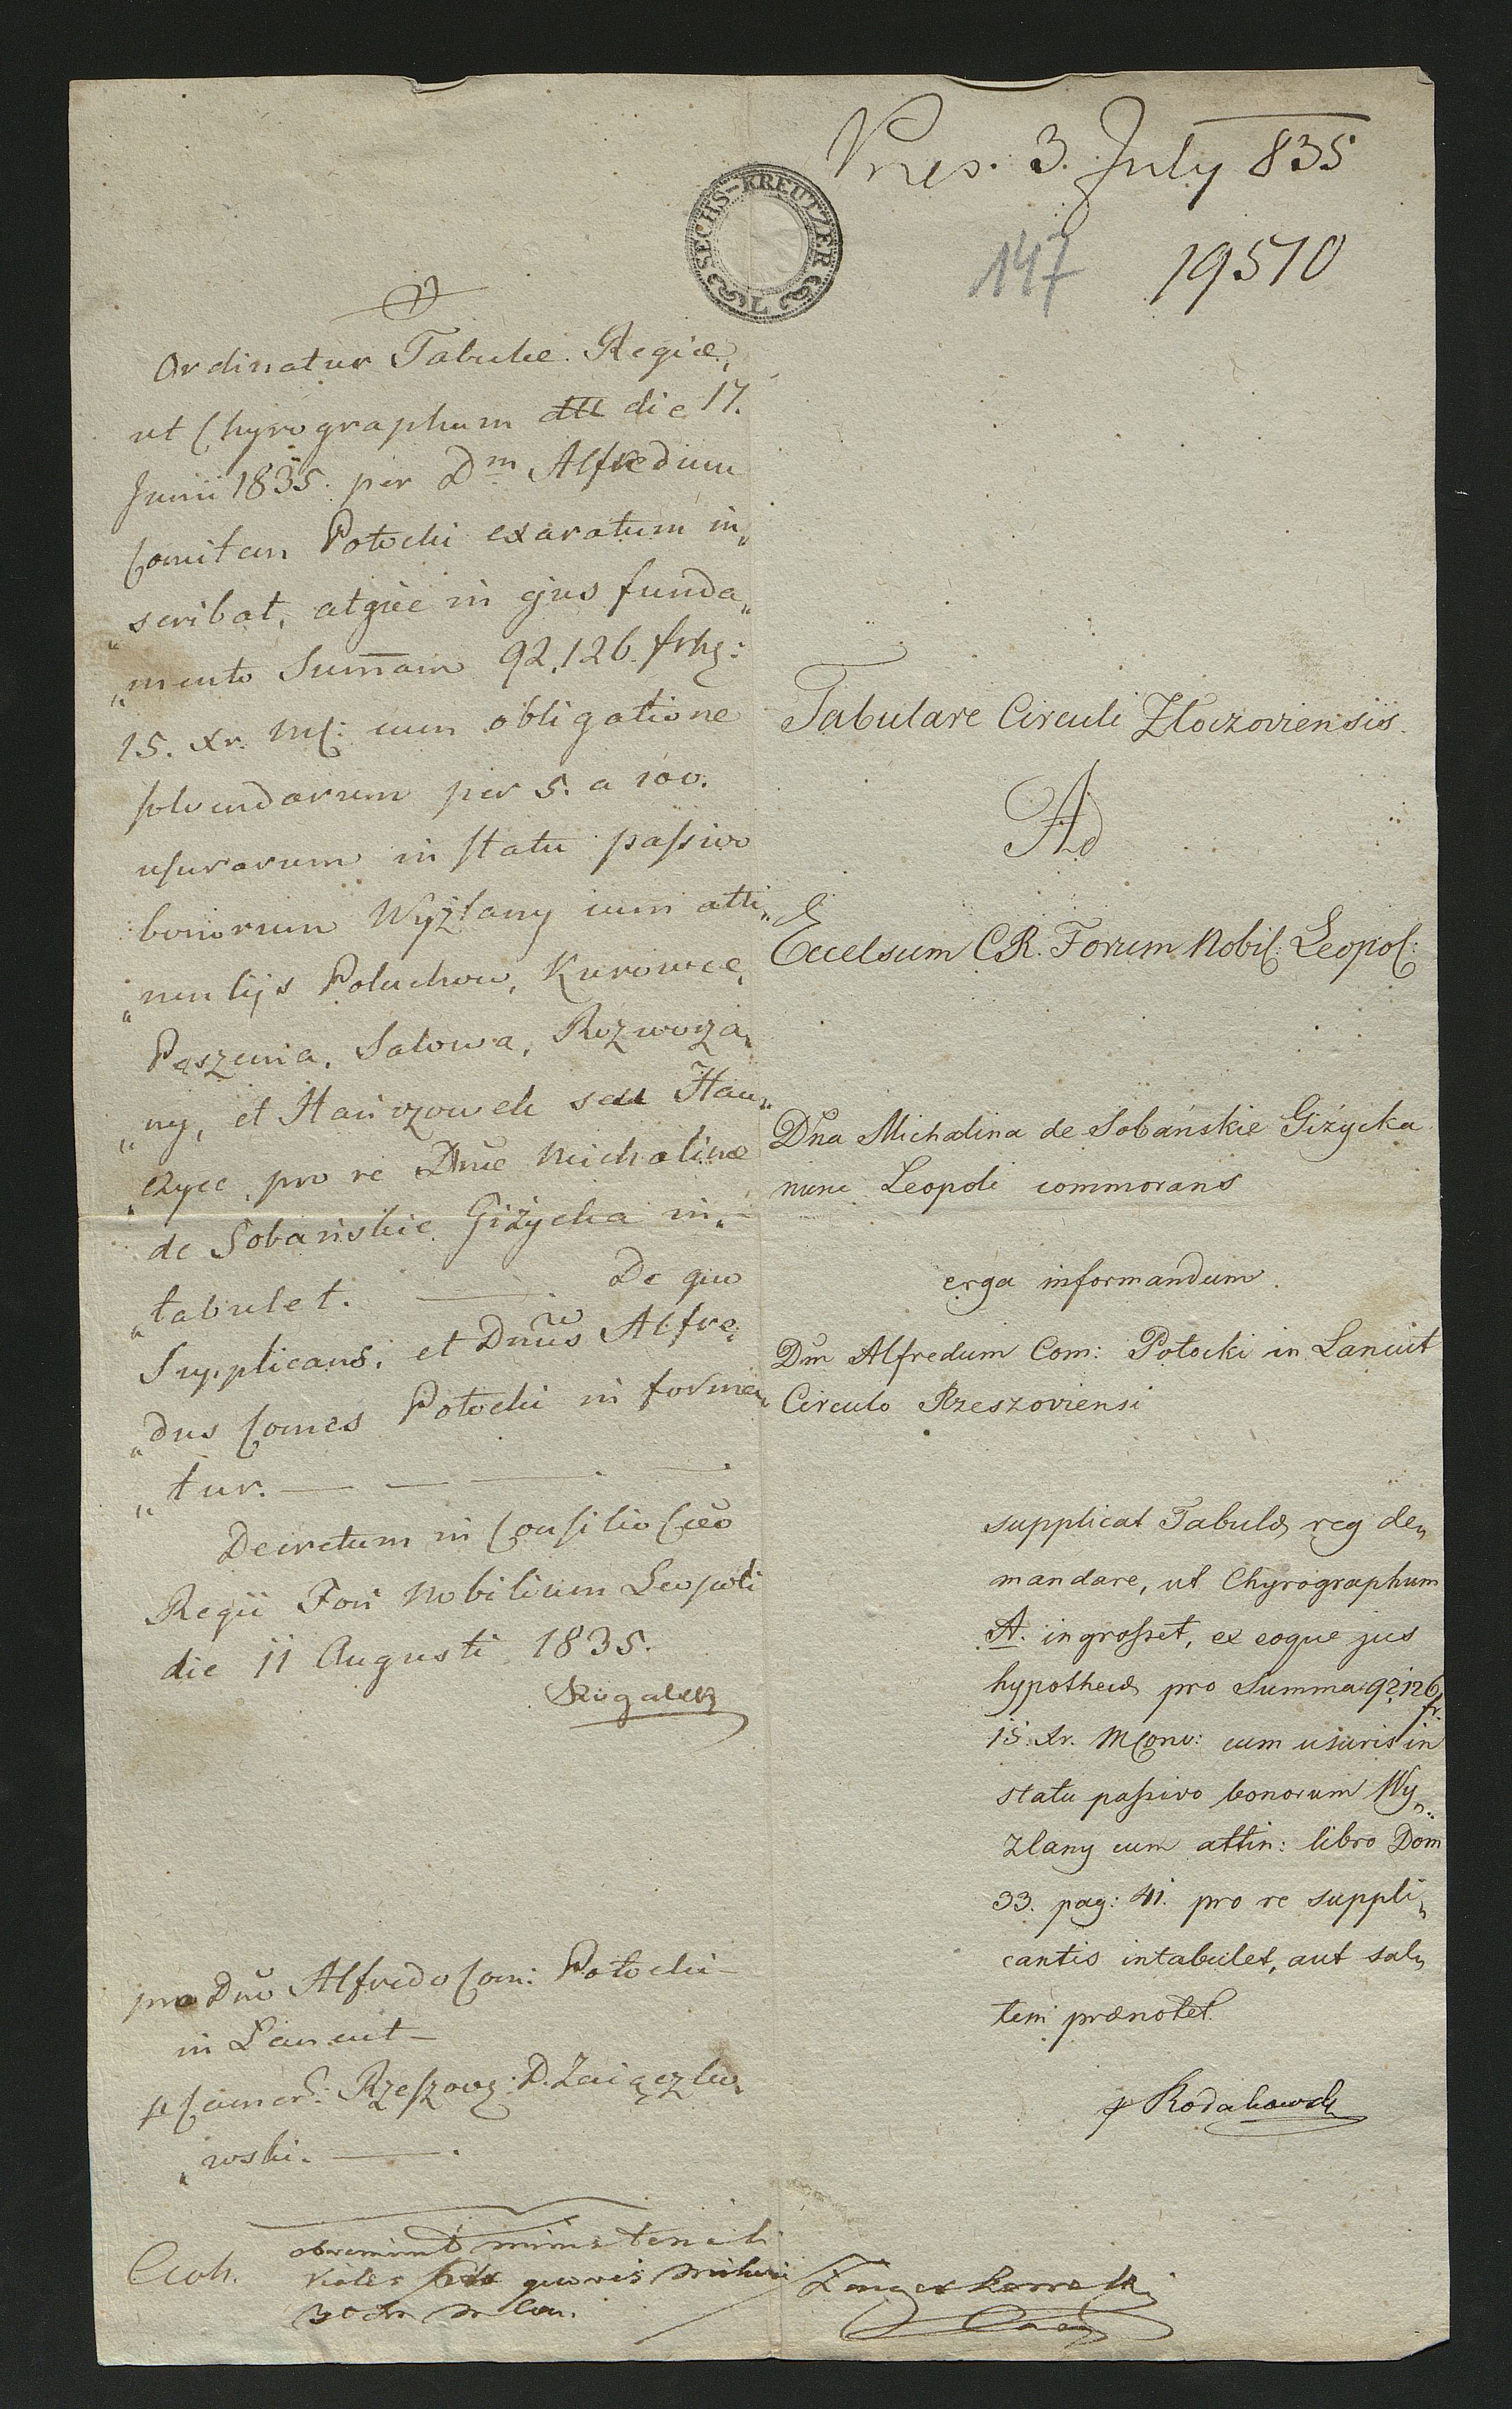 Pres. 3. July 835
147 19570
SECHS-KREUTZER
Ordinatur Tabulæ Regiæ,
ut Chyrographum dtt die 17.
Junii 1835. per Dm Alfredum
Comitem Potocki exaratum in„
„scribat, atque in ejus funda„
„mento Sumam 92,126. frhg:
15. xr. MC: cum obligatione
solvendarum per 5. a 100.
usurarum in statu passivo
bonorum Wyżlany cum atti„
„nentijs Poluchow, Kurowce,
Paszenia, Salowa, Rozworza„
„ny, et Hańczowek seu Han„
„czyce, pro re Dnæ Michalinæ
de Sobańskie Giżycka in„
„tabulet. — De quo
Supplicans, et Dnus Alfre„
„dus Comes Potocki informen„
„tur. — — — —
Decretum in Consilio Cæo
Regii Fori Nobilium Leopoli
die 11 Augusti 1835.
pro Dno Alfredo Com: Potocki
in Lancut —
p Camer: Rzeszov: D. Zaiączko„
„wski. —
Tabulare Circuli Złoczoviensis.
Ad
Excelsum C.R. Forum Nobil: Leopol:
Dna Michalina de Sobańskie Giżycka
nunc Leopoli commorans
erga informandum.
Dm Alfredum Com: Potocki in Lancut
Circulo Rzeszoviensi
supplicat Tabulæ reg de„
mandare, ut Chyrographum
A. ingrosset, ex eoque jus
hypothecæ pro Summa 92,126
fr.
15 xr. MConv: cum usuris in
statu passivo bonorum Wy„
żlany cum attin: libro Dom
33. pag: 41. pro re suppli„
cantis intabulet, aut sal„
tem prænotet.
p Rodakowski